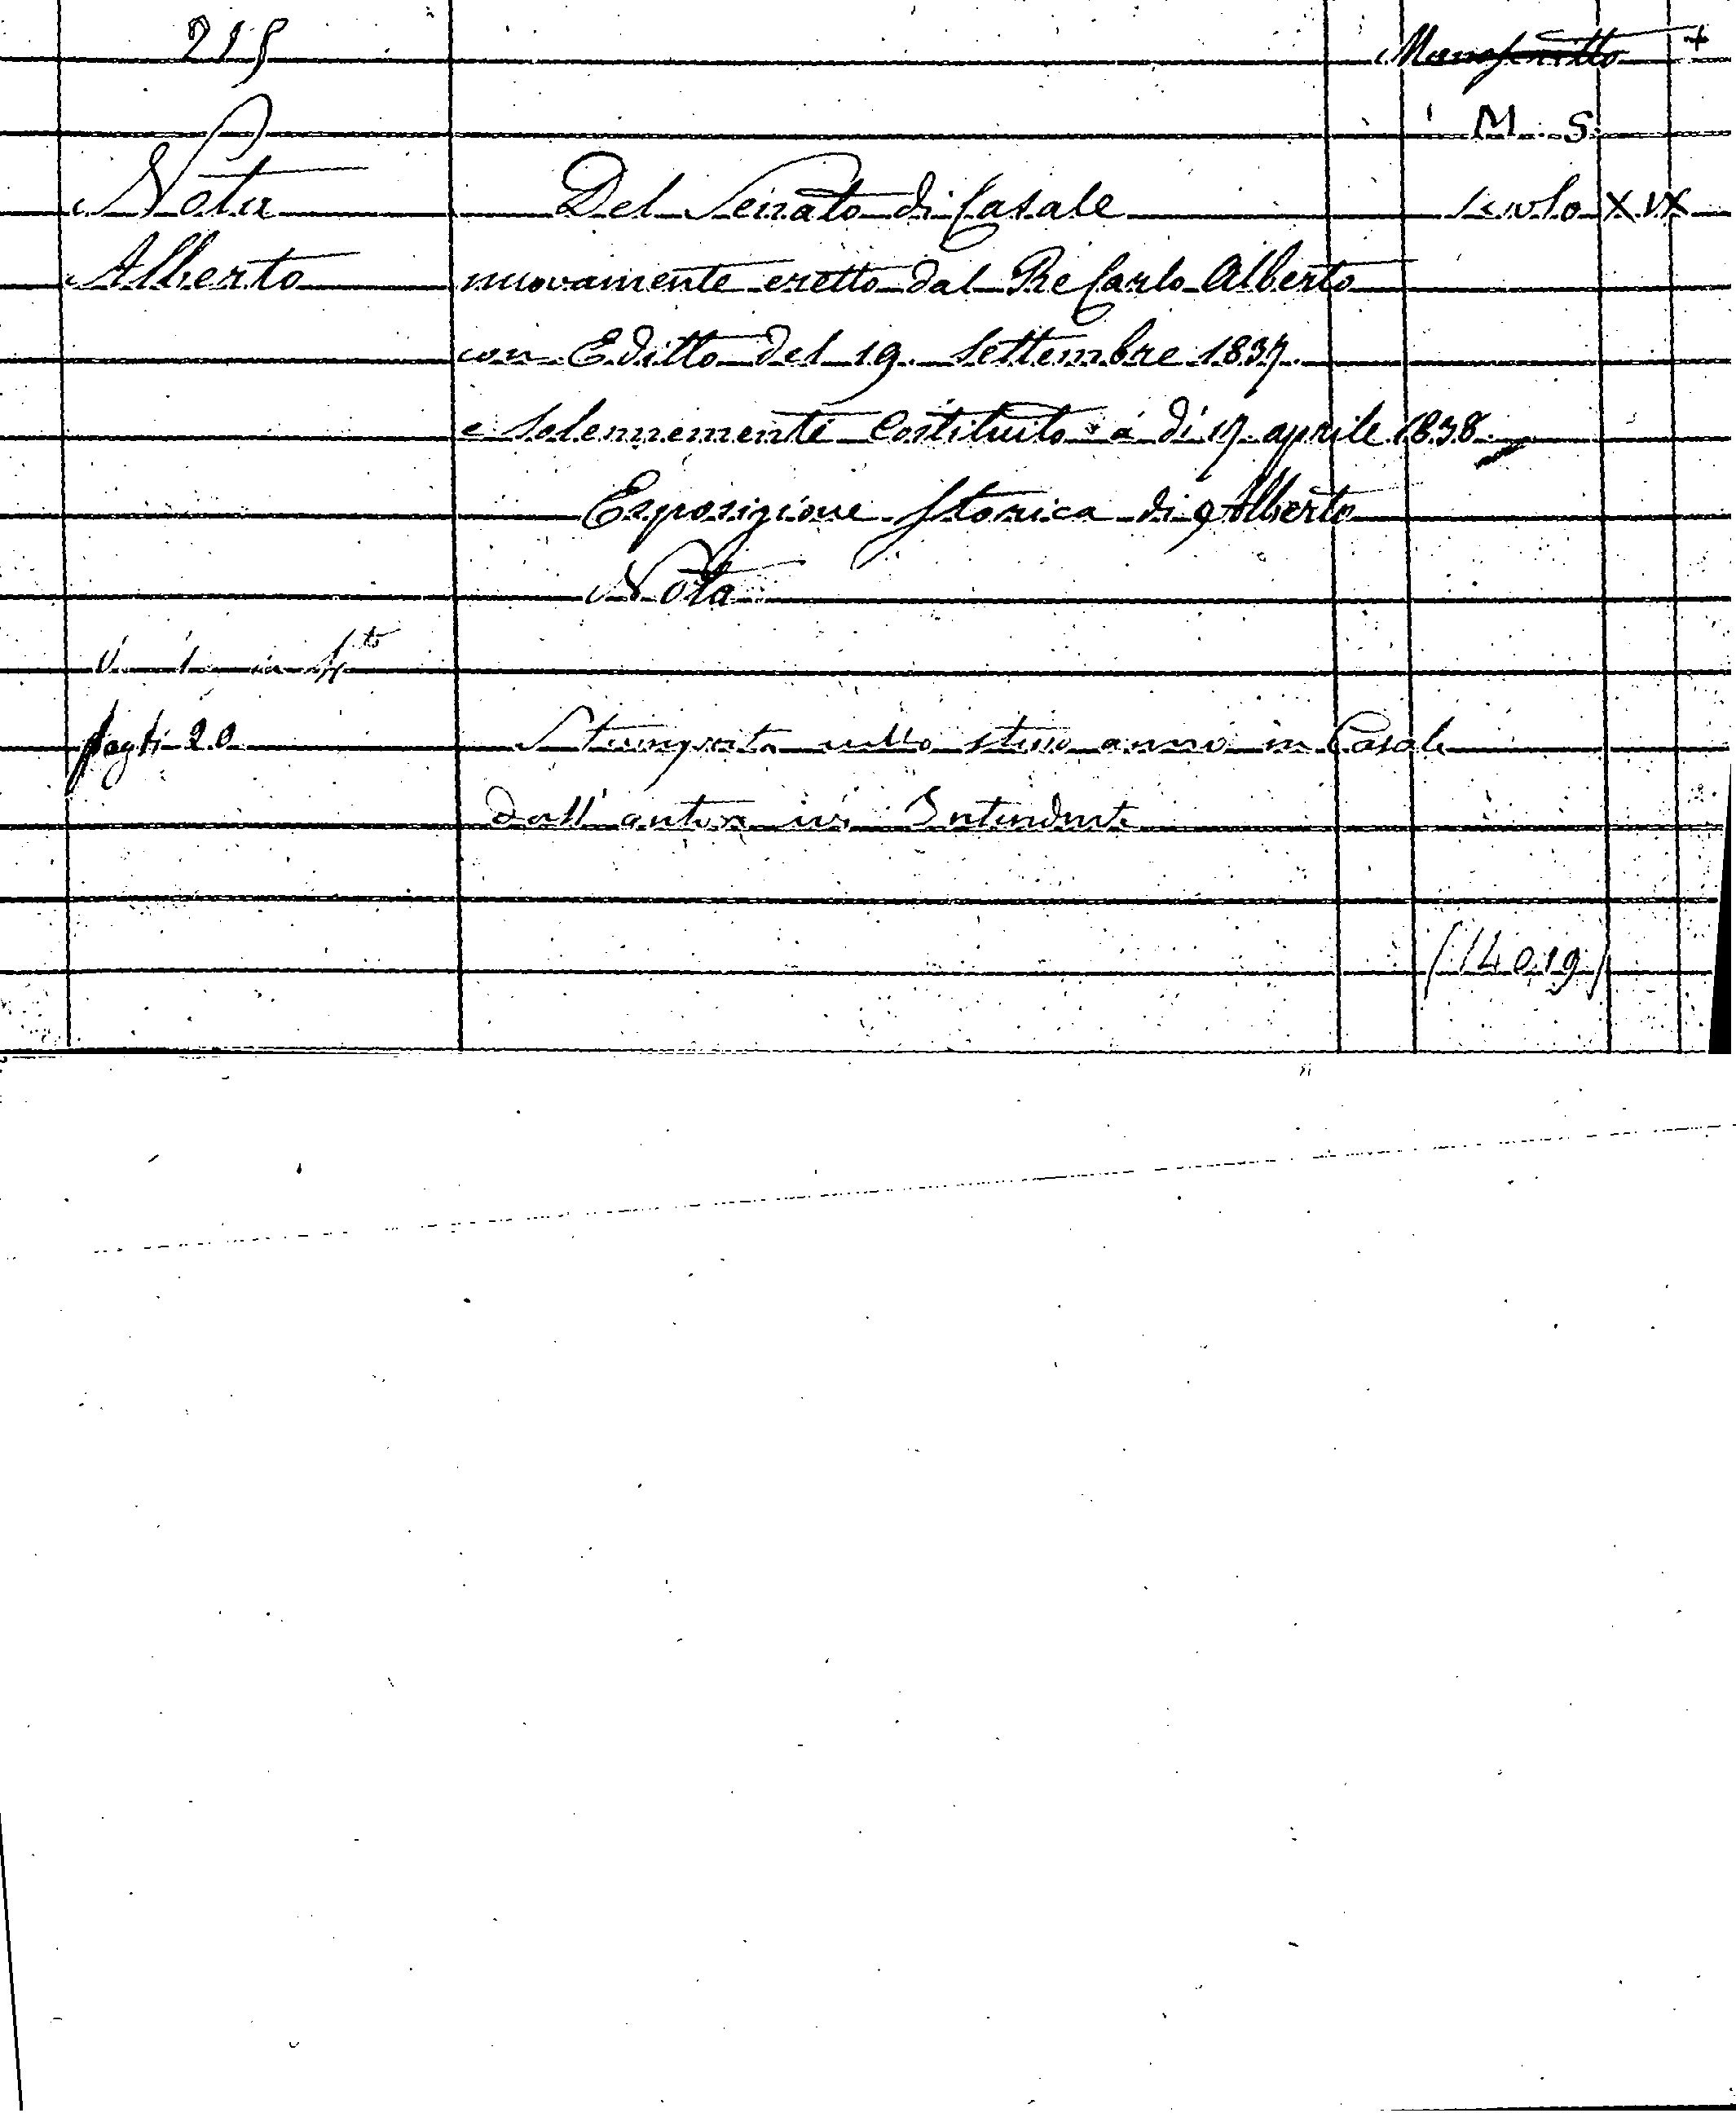 215
Manoscritto +
M. S.
Nota Del Senato di Casale secolo XIX
Alberto nuovamente eretto dal Re Carlo Alberto
con Editto del 19. Settembre 1837.
e solennemente Costituito a dì 17 aprile 1838
Esposizione Storica di Alberto
Nota
V. 1 in 4to
fogli 20 Stampata nello stesso anno in Casale
dall' autore ivi Intendente
(14019)